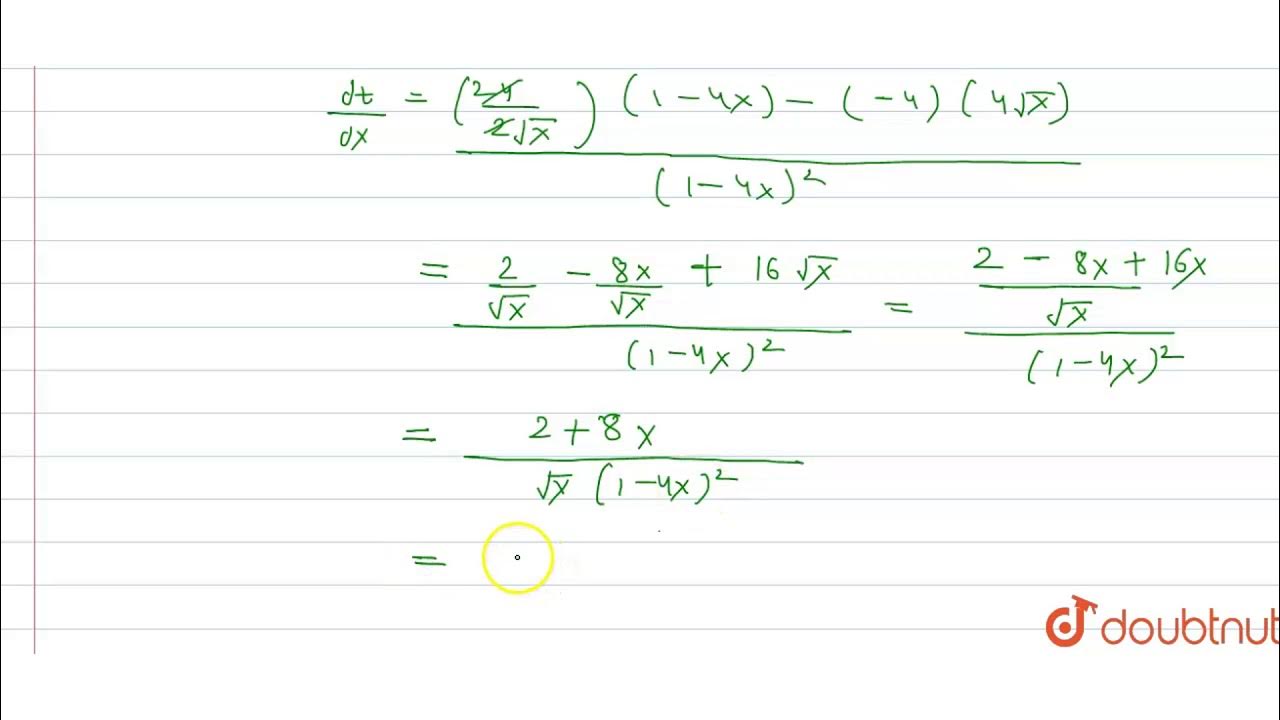 dt/dx = ((2 4̶/2̶√x) (1 - 4x) - (-4) (4√x))/(1 - 4x)²
= (2/√x - 8x/√x + 16√x)/(1 - 4x)² = ((2 - 8x + 16x)/√x)/(1 - 4x)²
= (2 + 8x)/(√x (1 - 4x)²)
=
doubtnut